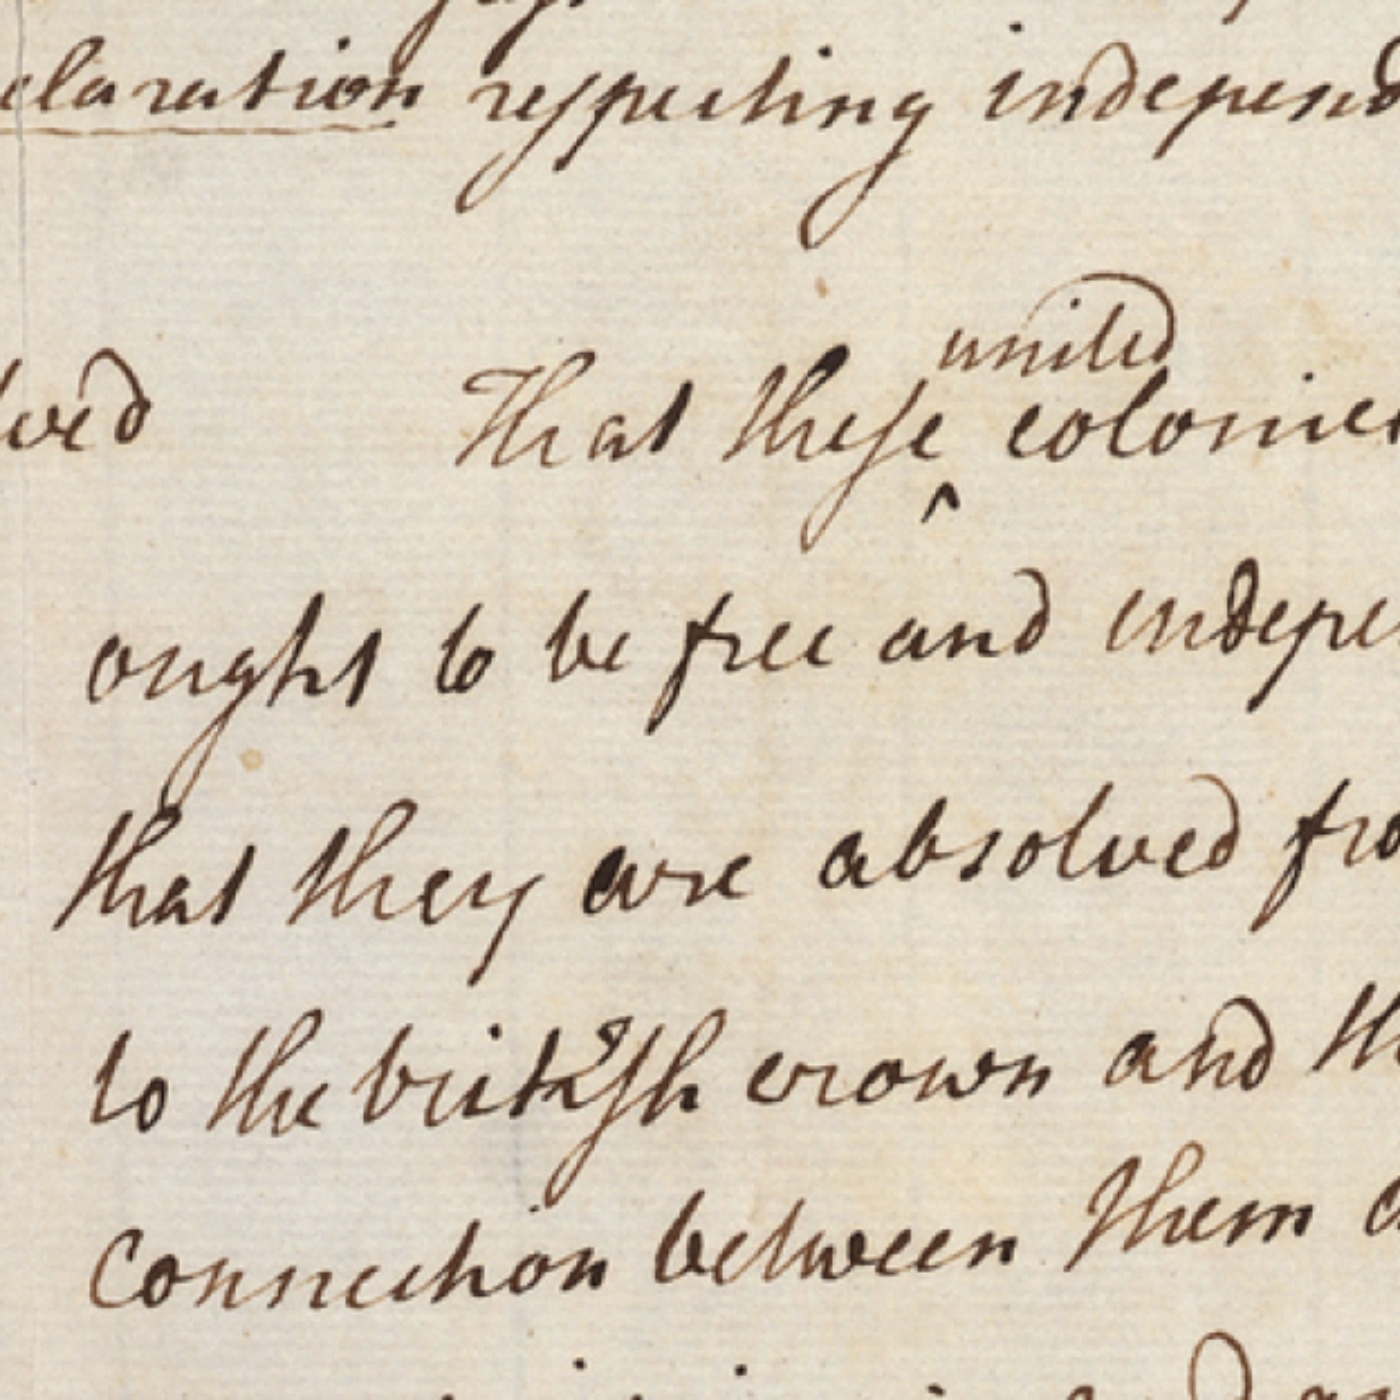 claration respecting independ
united
lved That these colonies
ought to be free and indepe
that they are absolved fro
to the british crown and th
Connection between them a